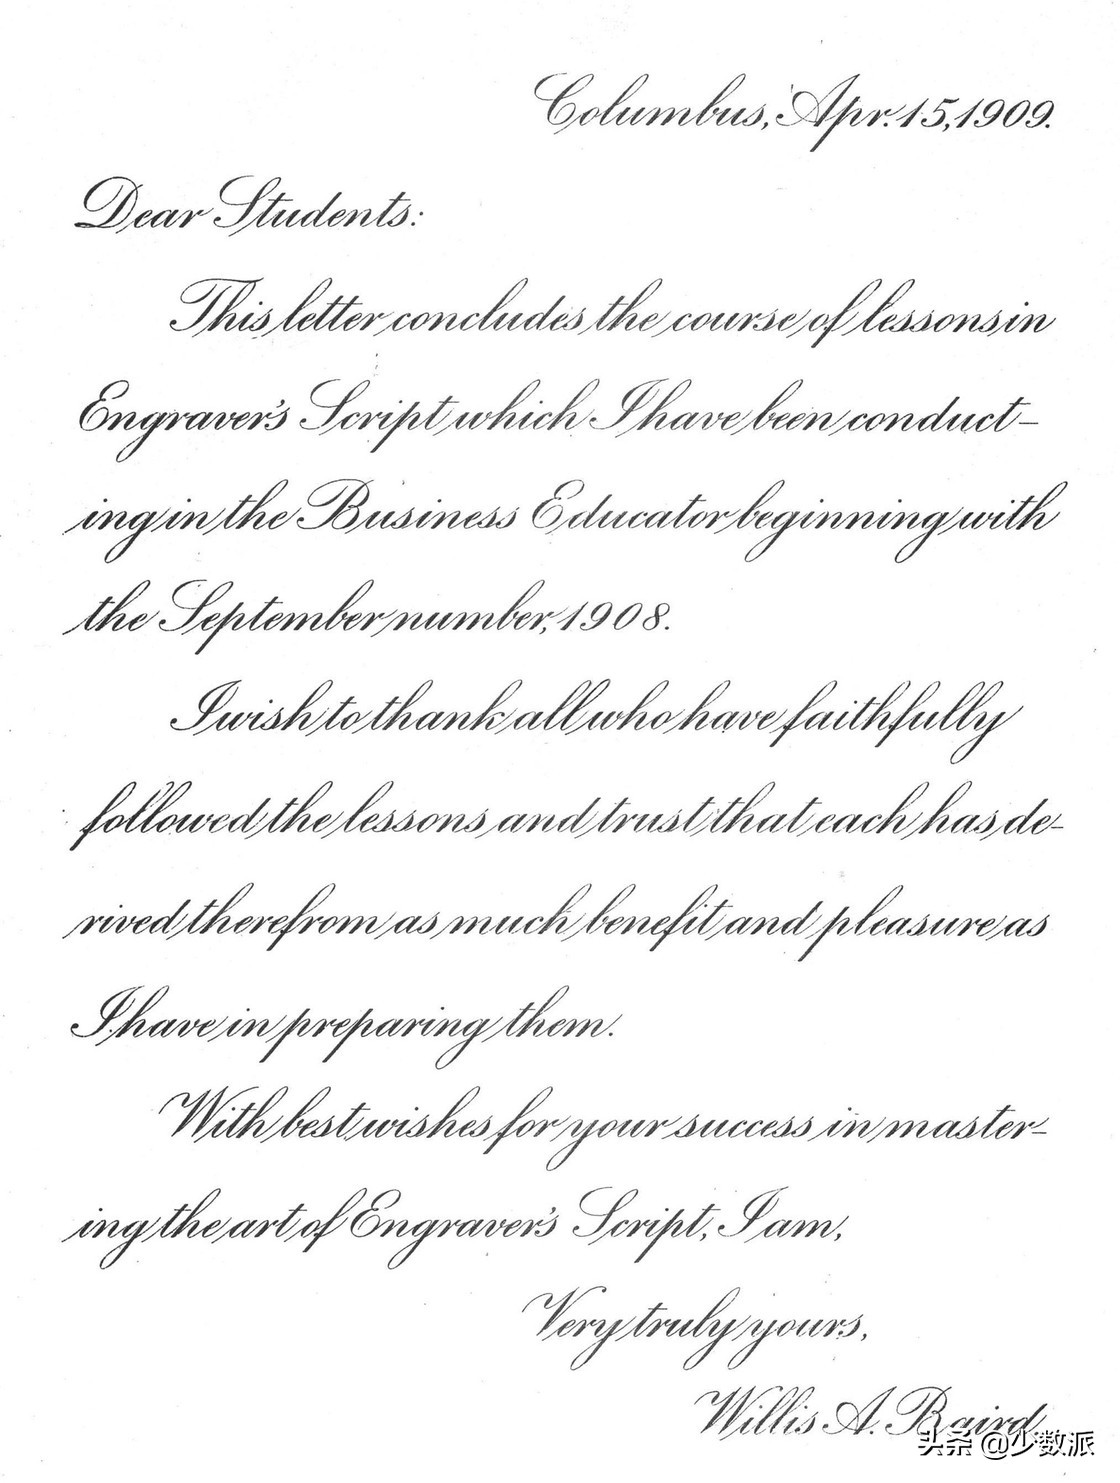 Columbus, Apr. 15, 1909.
Dear Students:
This letter concludes the course of lessons in
Engraver's Script which I have been conduct-
ing in the Business Educator beginning with
the September number, 1908.
I wish to thank all who have faithfully
followed the lessons and trust that each has de-
rived therefrom as much benefit and pleasure as
I have in preparing them.
With best wishes for your success in master-
ing the art of Engraver's Script, I am,
Very truly yours,
Willis A. Baird
头条 @少数派